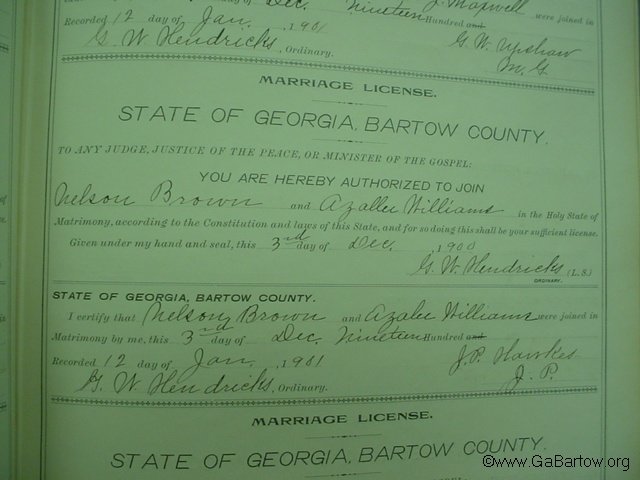 Dec. J. Maxwell were joined in
Nineteen Hundred and
Recorded 12 day of Jan. , 1901
G. W. Upshaw
G. W. Hendricks, Ordinary.
M. G.
MARRIAGE LICENSE.
STATE OF GEORGIA, BARTOW COUNTY.
TO ANY JUDGE, JUSTICE OF THE PEACE, OR MINISTER OF THE GOSPEL:
YOU ARE HEREBY AUTHORIZED TO JOIN
Nelson Brown and Azallee Williams in the Holy State of
Matrimony, according to the Constitution and laws of this State, and for so doing this shall be your sufficient license.
Given under my hand and seal, this 3rd day of Dec. , 1900
G. W. Hendricks (L. S.)
ORDINARY.
STATE OF GEORGIA, BARTOW COUNTY.
I certify that Nelson Brown and Azalee Williams were joined in
Matrimony by me, this 3rd day of Dec. Nineteen Hundred and
Recorded 12 day of Jan. , 1901
J. P. Hawkes
G. W Hendricks, Ordinary.
J. P.
MARRIAGE LICENSE.
STATE OF GEORGIA, BARTOW COUNTY.
©www.GaBartow.org